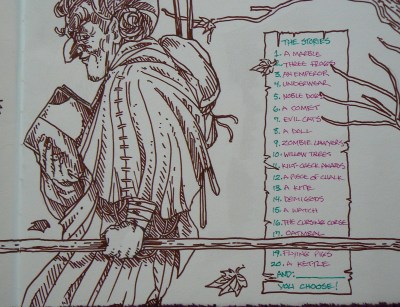 THE STORIES
1. A MARBLE
2. THREE FROGS
3. AN EMPEROR
4. UNDERWEAR
5. NOBLE DOGS
6. A COMET
7. EVIL CATS
8. A DOLL
9. ZOMBIE LAWYERS
10. WILLOW TREES
11. KILT-CREEK AWARDS
12. A PIECE OF CHALK
13. A KITE
14. DEMI-GODS
15. A WATCH
16. THE CURSING CURSE
17. OATMEAL
19. FLYING PIGS
20. A KETTLE
AND:
YOU CHOOSE!